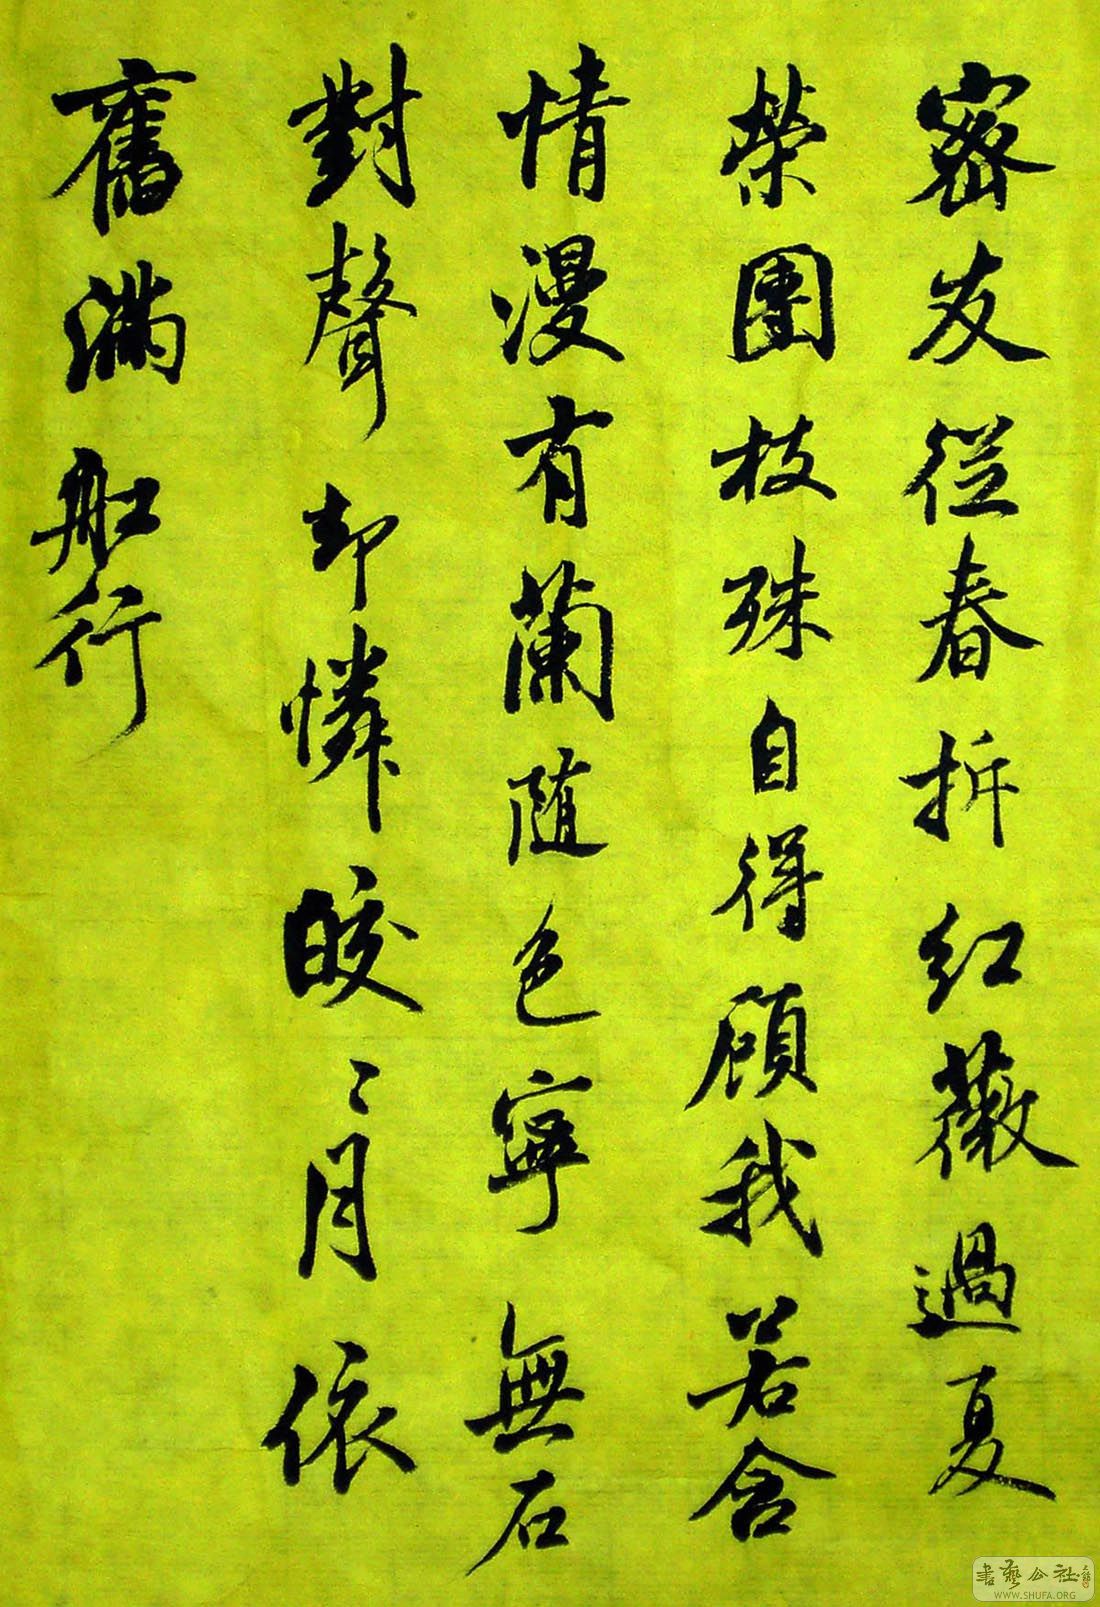 密友從春拆紅薇過夏
榮團枝殊自得顧我若含
情漫有蘭随色寧無石
對聲却憐皎〻月依
舊滿舡行
書藝公社
WWW.SHUFA.ORG